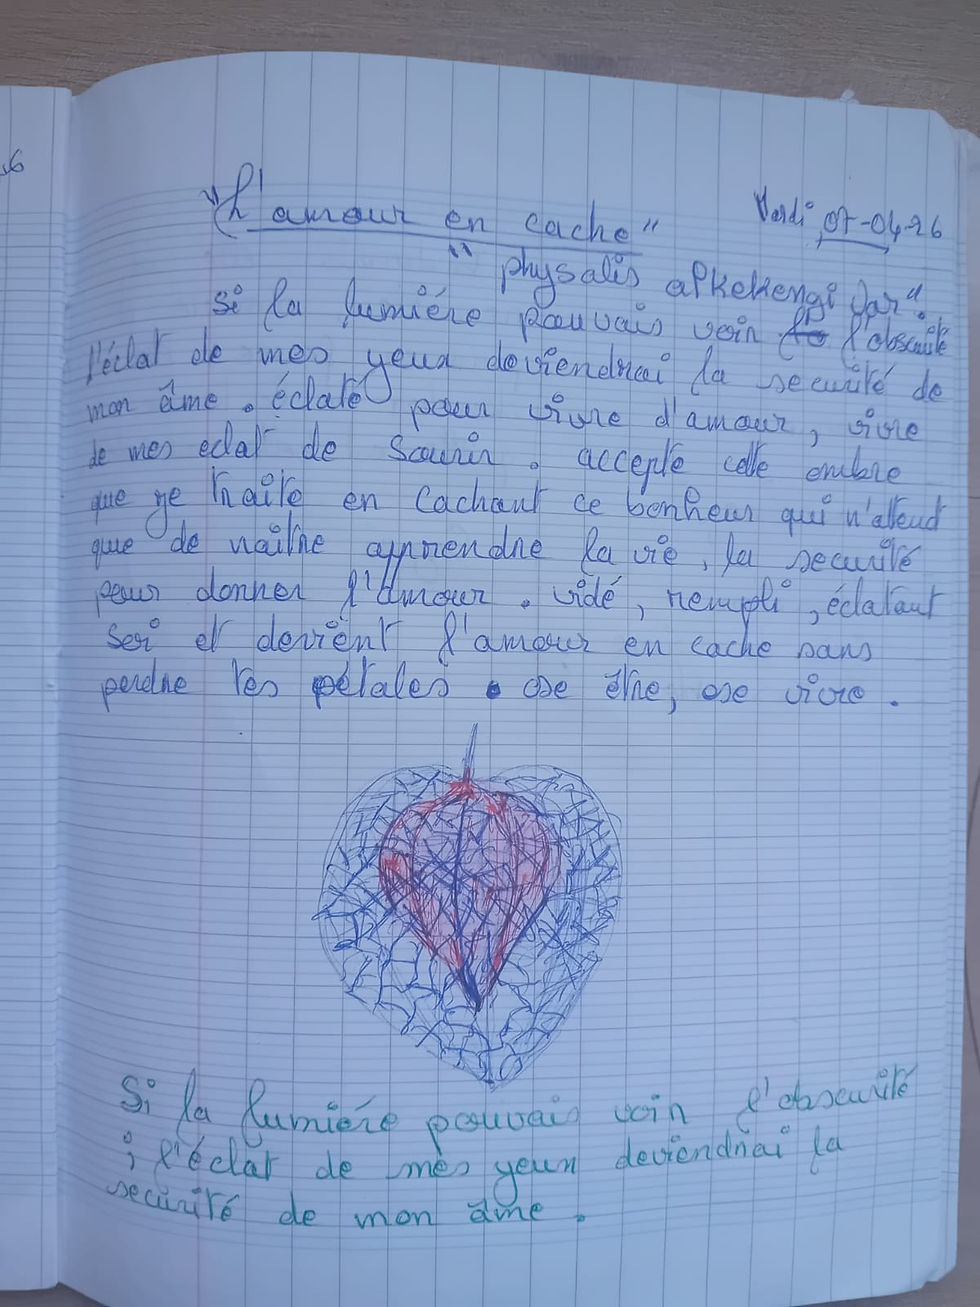 6
"L'amour en cache" Vardi 07-04-26
"physalis alkekengi var".
Si la lumière pouvais voir l'obscurité
l'éclat de mes yeux deviendrai la securité de
mon âme. éclaté pour vivre d'amour, vivre
de mes eclat de sourir. accepte cette ombre
que je traite en cachant ce bonheur qui n'attend
que de naître apprendre la vie, la securité
pour donner l'Amour. vidé, rempli, éclatant
seri et devient l'amour en cache sans
perdre tes pétales. ose être, ose vivre.
Si la lumière pouvais voir l'obscurité
; l'éclat de mes yeux deviendrai la
securité de mon âme.